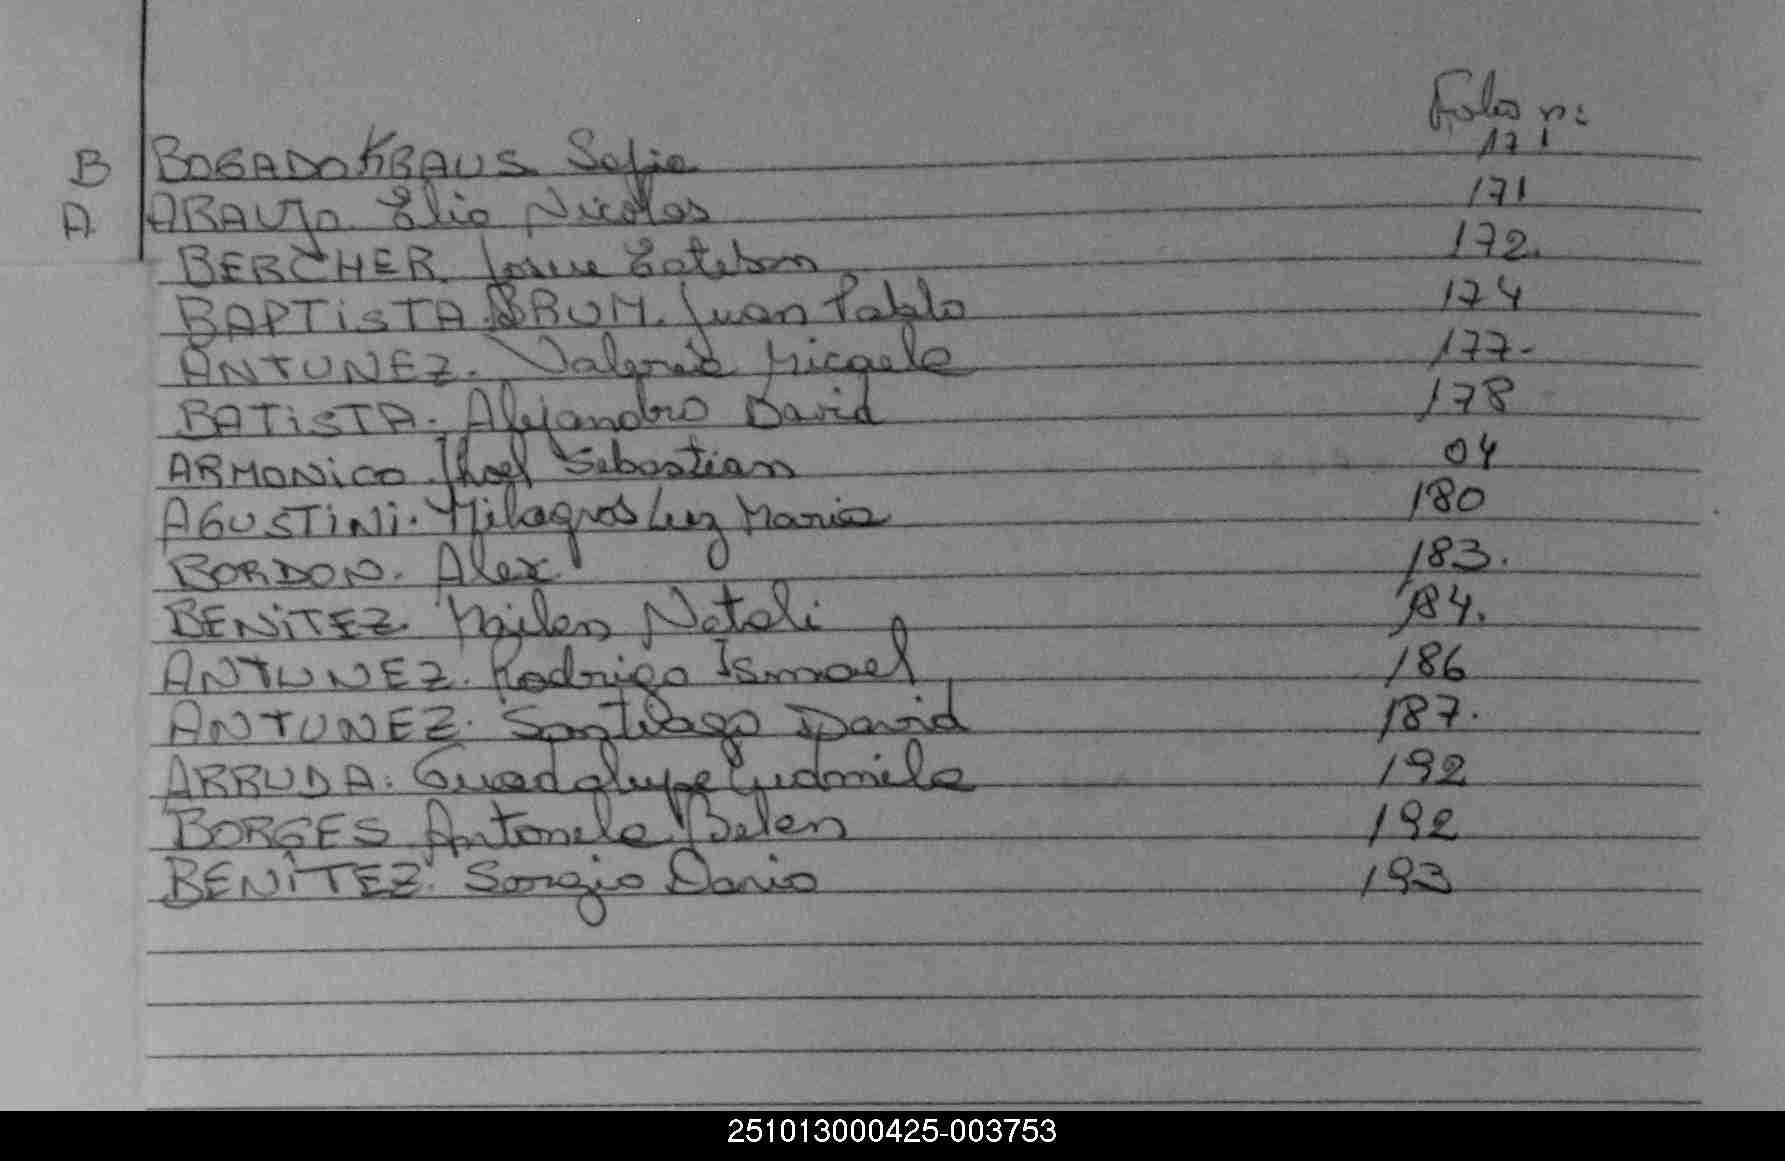 Folio n:
B BOGADO KRAUS Sofia 171
A ARAUJO Elio Nicolas 171
BERCHER Josue Esteban 172.
BAPTiSTA BRUM. Juan Pablo 174
ANTUNEZ. Valeria Micaela 177-
BATiSTA. Alejandro David 178
ARMONiCO Jhoel Sebastian 04
AGUSTiNi. Milagros Luz Maria 180
BORDON. Alex. 183.
BENiTEZ. Mailen Natali 184.
ANTUNEZ. Rodrigo Ismael 186
ANTUNEZ. Santiago David 187.
ARRUDA. Guadalupe Ludmila 192
BORGES Antonela Belen 192
BENiTEZ. Sergio Dario 193
251013000425-003753